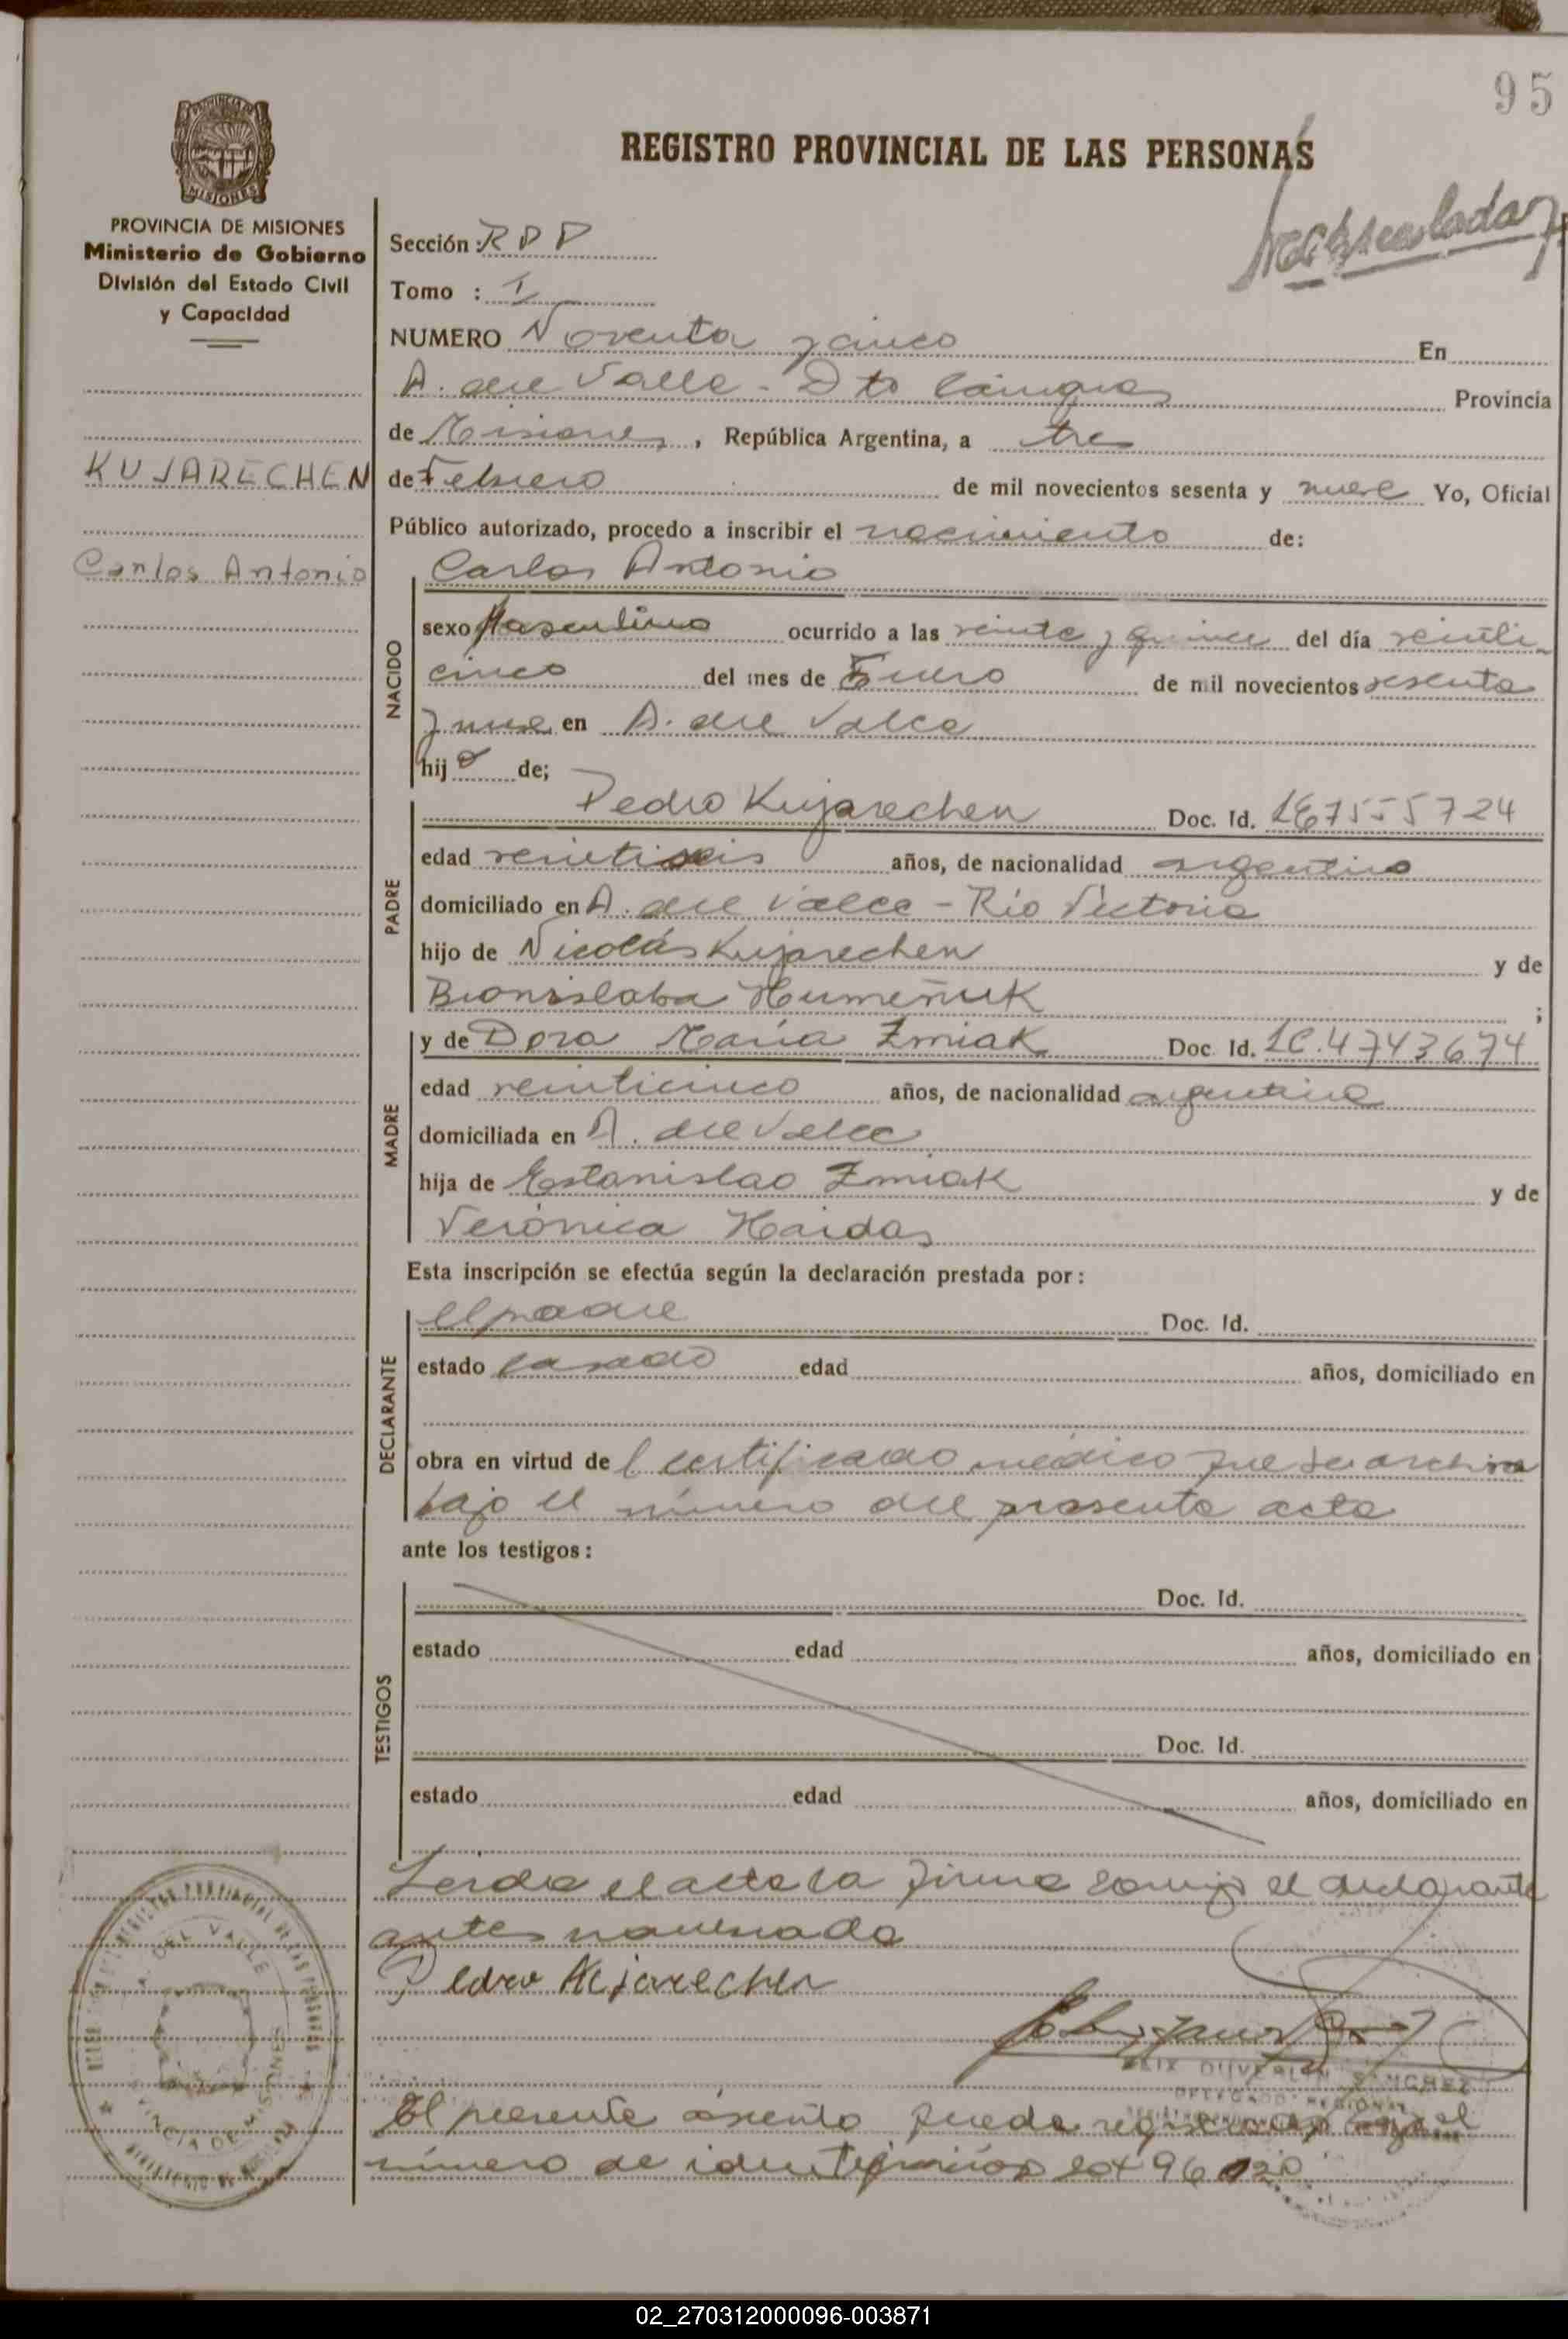 95
REGISTRO PROVINCIAL DE LAS PERSONAS
PROVINCIA DE MISIONES
MISIONES
PROVINCIA DE MISIONES
Ministerio de Gobierno
División del Estado Civil
y Capacidad
KUJARECHEN
Carlos Antonio
Sección: RDP
Tomo : I
NUMERO Noventa y cinco En
A. del Valle - Dto Cainguas Provincia
de Misiones, República Argentina, a tres
de Febrero de mil novecientos sesenta y nueve Yo, Oficial
Público autorizado, procedo a inscribir el nacimiento de:
NACIDO
Carlos Antonio
sexo Masculino ocurrido a las veinte y quince del día veinti-
cinco del mes de Enero de mil novecientos sesenta
y nueve en A. del Valle
hijo de;
PADRE
Pedro Kujarechen Doc. Id. LE7555724
edad veintiseis años, de nacionalidad argentino
domiciliado en A. del Valle - Río Victoria
hijo de Nicolás Kujarechen y de
Bronislaba Humeñuk ;
MADRE
y de Dora María Zmiak Doc. Id. LC.4743674
edad veinticinco años, de nacionalidad argentina
domiciliada en A. del Valle
hija de Estanislao Zmiak y de
Verónica Haidas
Esta inscripción se efectúa según la declaración prestada por:
DECLARANTE
el padre Doc. Id.
estado casado edad años, domiciliado en
obra en virtud del certificado médico que se archiva
bajo el número del presente acta
ante los testigos:
TESTIGOS
Doc. Id.
estado edad años, domiciliado en
Doc. Id.
estado edad años, domiciliado en
Leída el acta la firma conmigo el declarante
antes nombrado
Pedro Kujarechen
SANCHEZ
DELEGADO REGIONAL
DEL VALLE
El presente asiento queda registrado bajo el
número de identificación
02_270312000096-003871